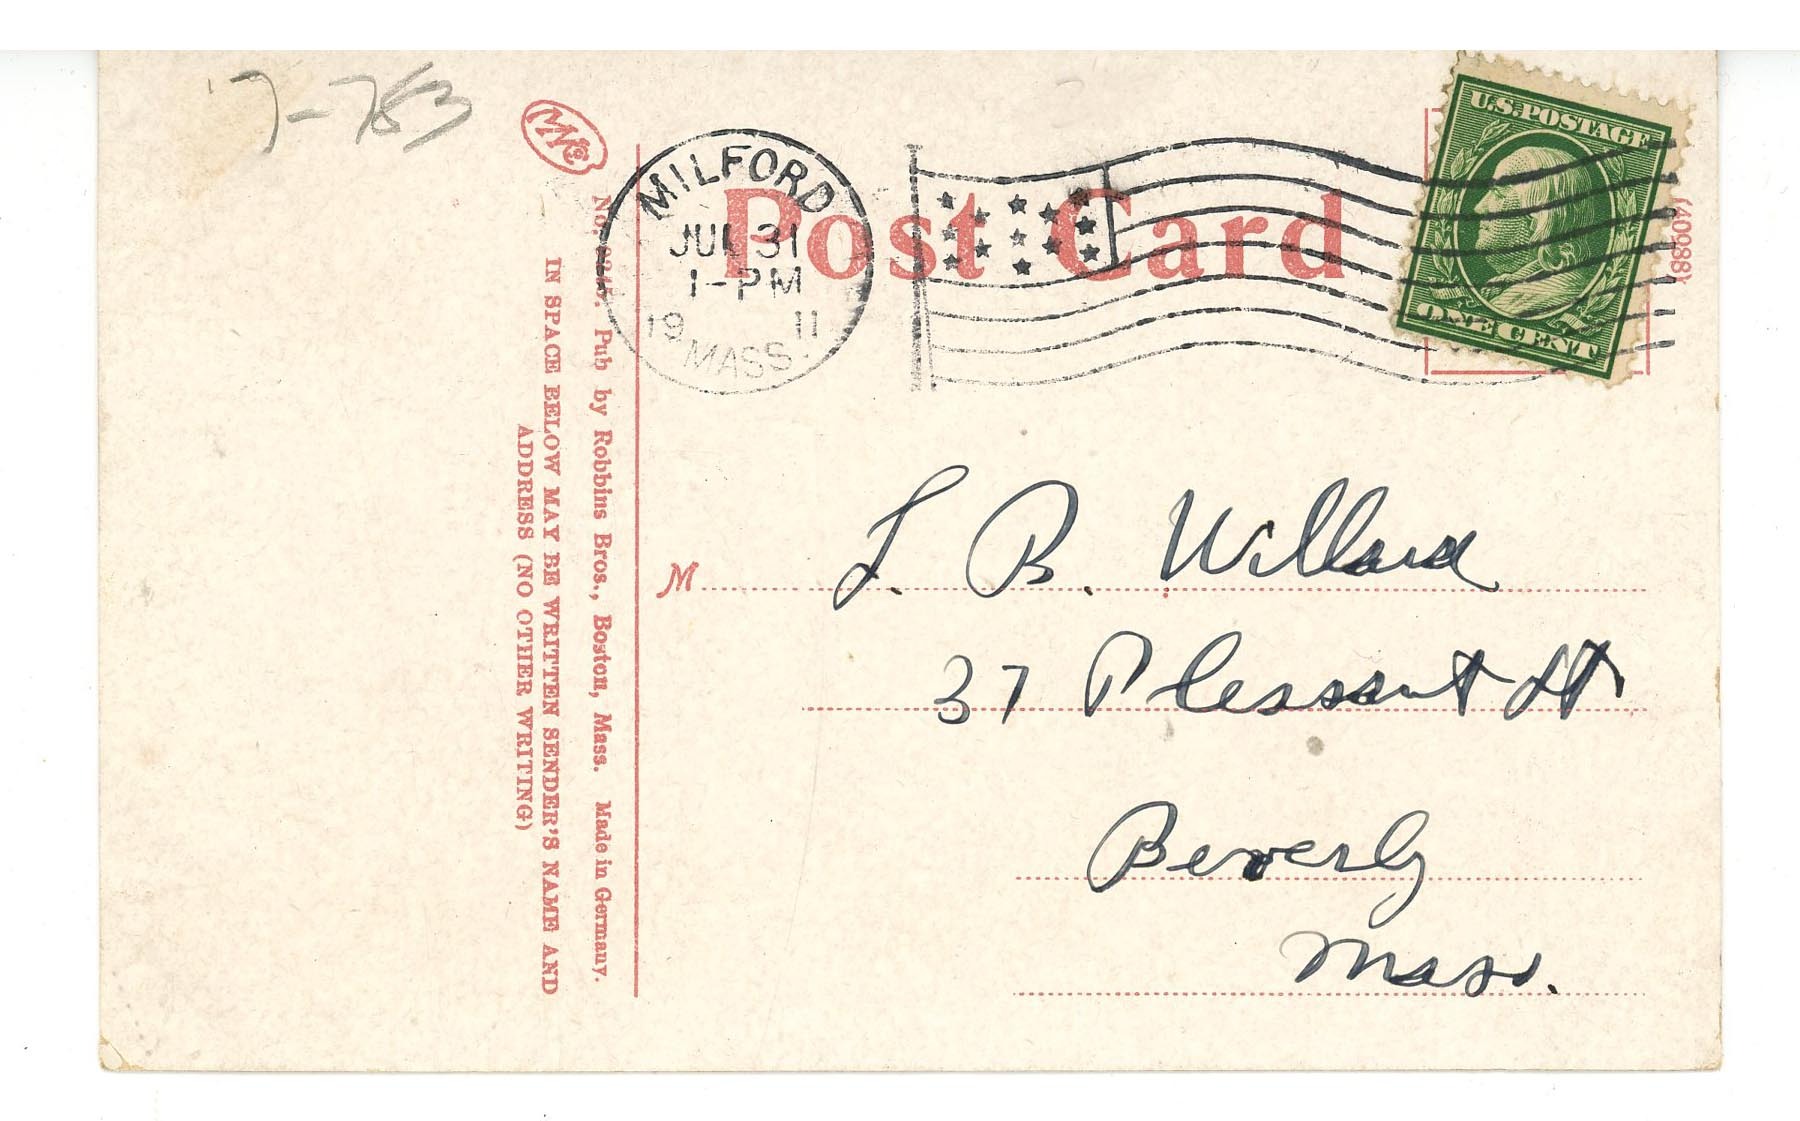 7-783
MILFORD
JUL 31
1-PM
19 11
MASS.
Post Card
U.S. POSTAGE
ONE CENT
(40988)
Pub by Robbins Bros., Boston, Mass. Made in Germany.
IN SPACE BELOW MAY BE WRITTEN SENDER'S NAME AND
ADDRESS (NO OTHER WRITING)
M
L. B. Willard
37 Plessant St.
Beverly
Mass.